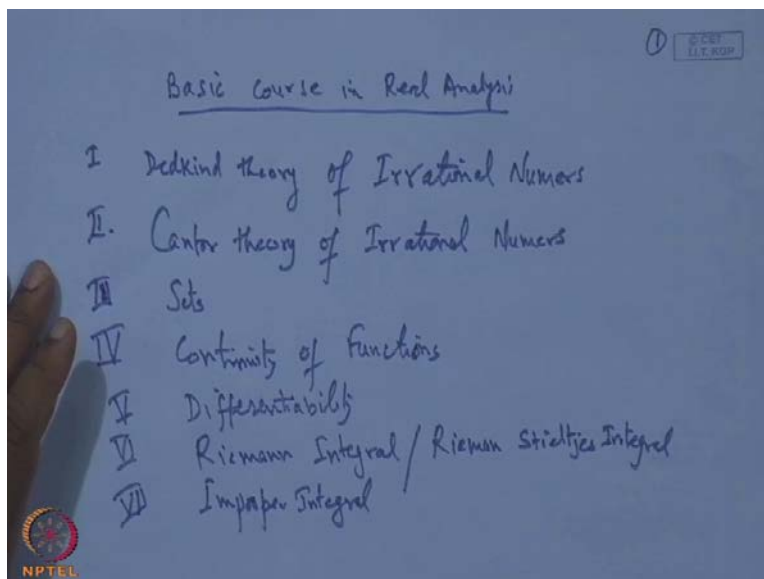 ①
© CET
I.I.T. KGP
Basic Course in Real Analysis
I Dedkind theory of Irrational Numers
II. Cantor theory of Irrational Numers
III Sets
IV Continuity of Functions
V Differentiability
VI Riemann Integral / Rieman Stieltjes Integral
VII Improper Integral
NPTEL